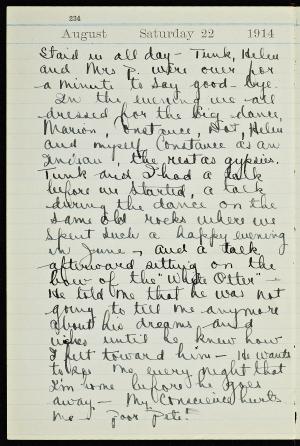 234
August Saturday 22 1914
Staid in all day - Tink, Helen
and Mrs P. were over for
a minute to say good-bye.
In the evening we all
dressed for the big dance,
Marion, Constance, Dot, Helen
and myself Constance as an
Indian, the rest as gypsies.
Tink and I had a talk
before we started, a talk
during the dance on the
same old rocks where we
spent such a happy evening
in June, and a talk
afterward sitting on the
bow of the "White Otter" -
He told me that he was not
going to tell me anymore
about his dreams and
wishes until he knew how
I felt toward him - He wants
to see me every night that
I'm home before he goes
away - My conscience hurts
me - "Poor Pete!"